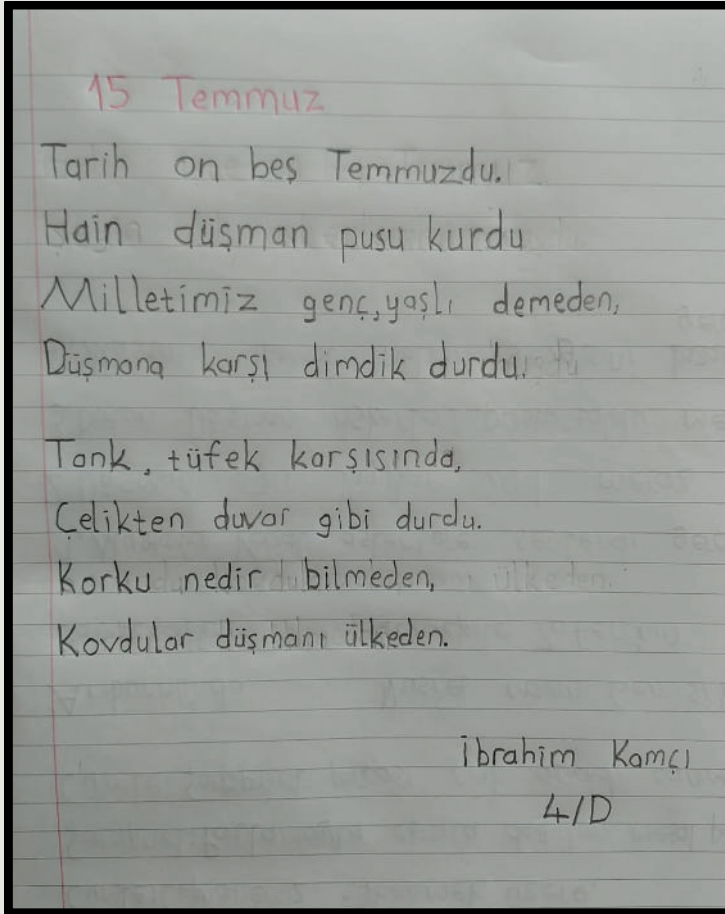 15 Temmuz
Tarih on beş Temmuzdu.
Hain düşman pusu kurdu
Milletimiz genç, yaşlı demeden,
Düşmana karşı dimdik durdu.
Tank, tüfek karşısında,
Çelikten duvar gibi durdu.
Korku nedir bilmeden,
Kovdular düşmanı ülkeden.
İbrahim Kamçı
4/D